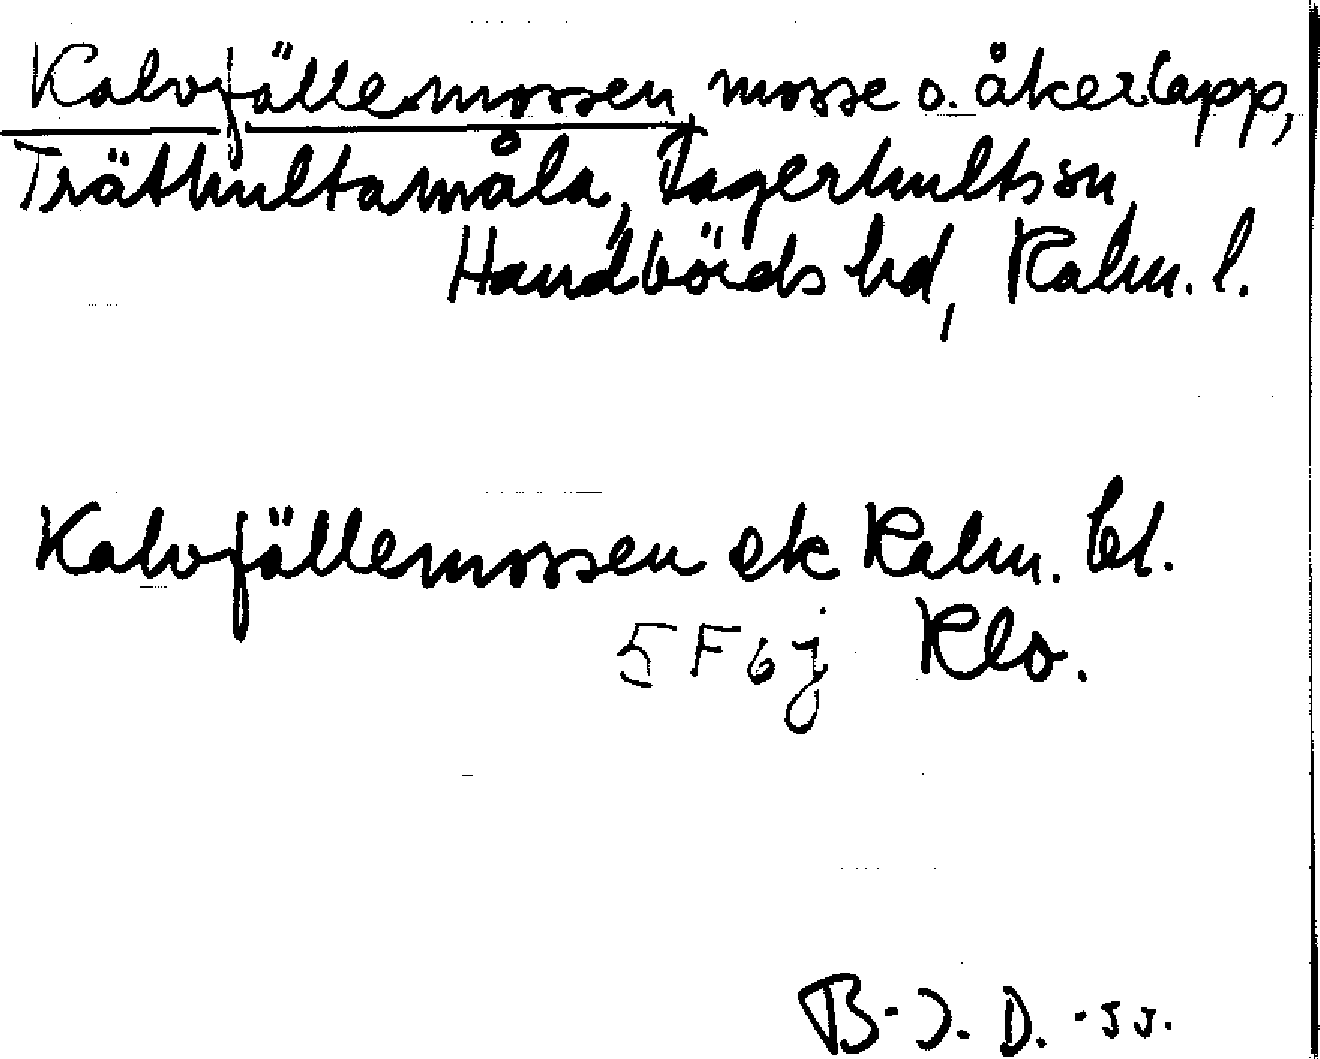 Kalvfällemossen, mosse o. åkerlapp,
Träthultamåla, Fagerhults sn,
Handbörds hd, Kalm. l.
Kalvfällemossen ek Kalm. bl.
5F6j Klo.
B-J. D. -55.